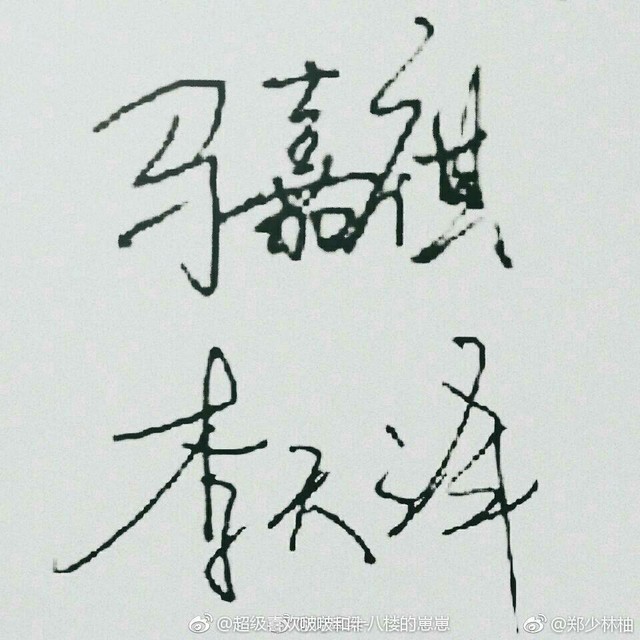 马嘉祺
李天泽
@超级喜欢啵啵和十八楼的崽崽
@郑少林柚